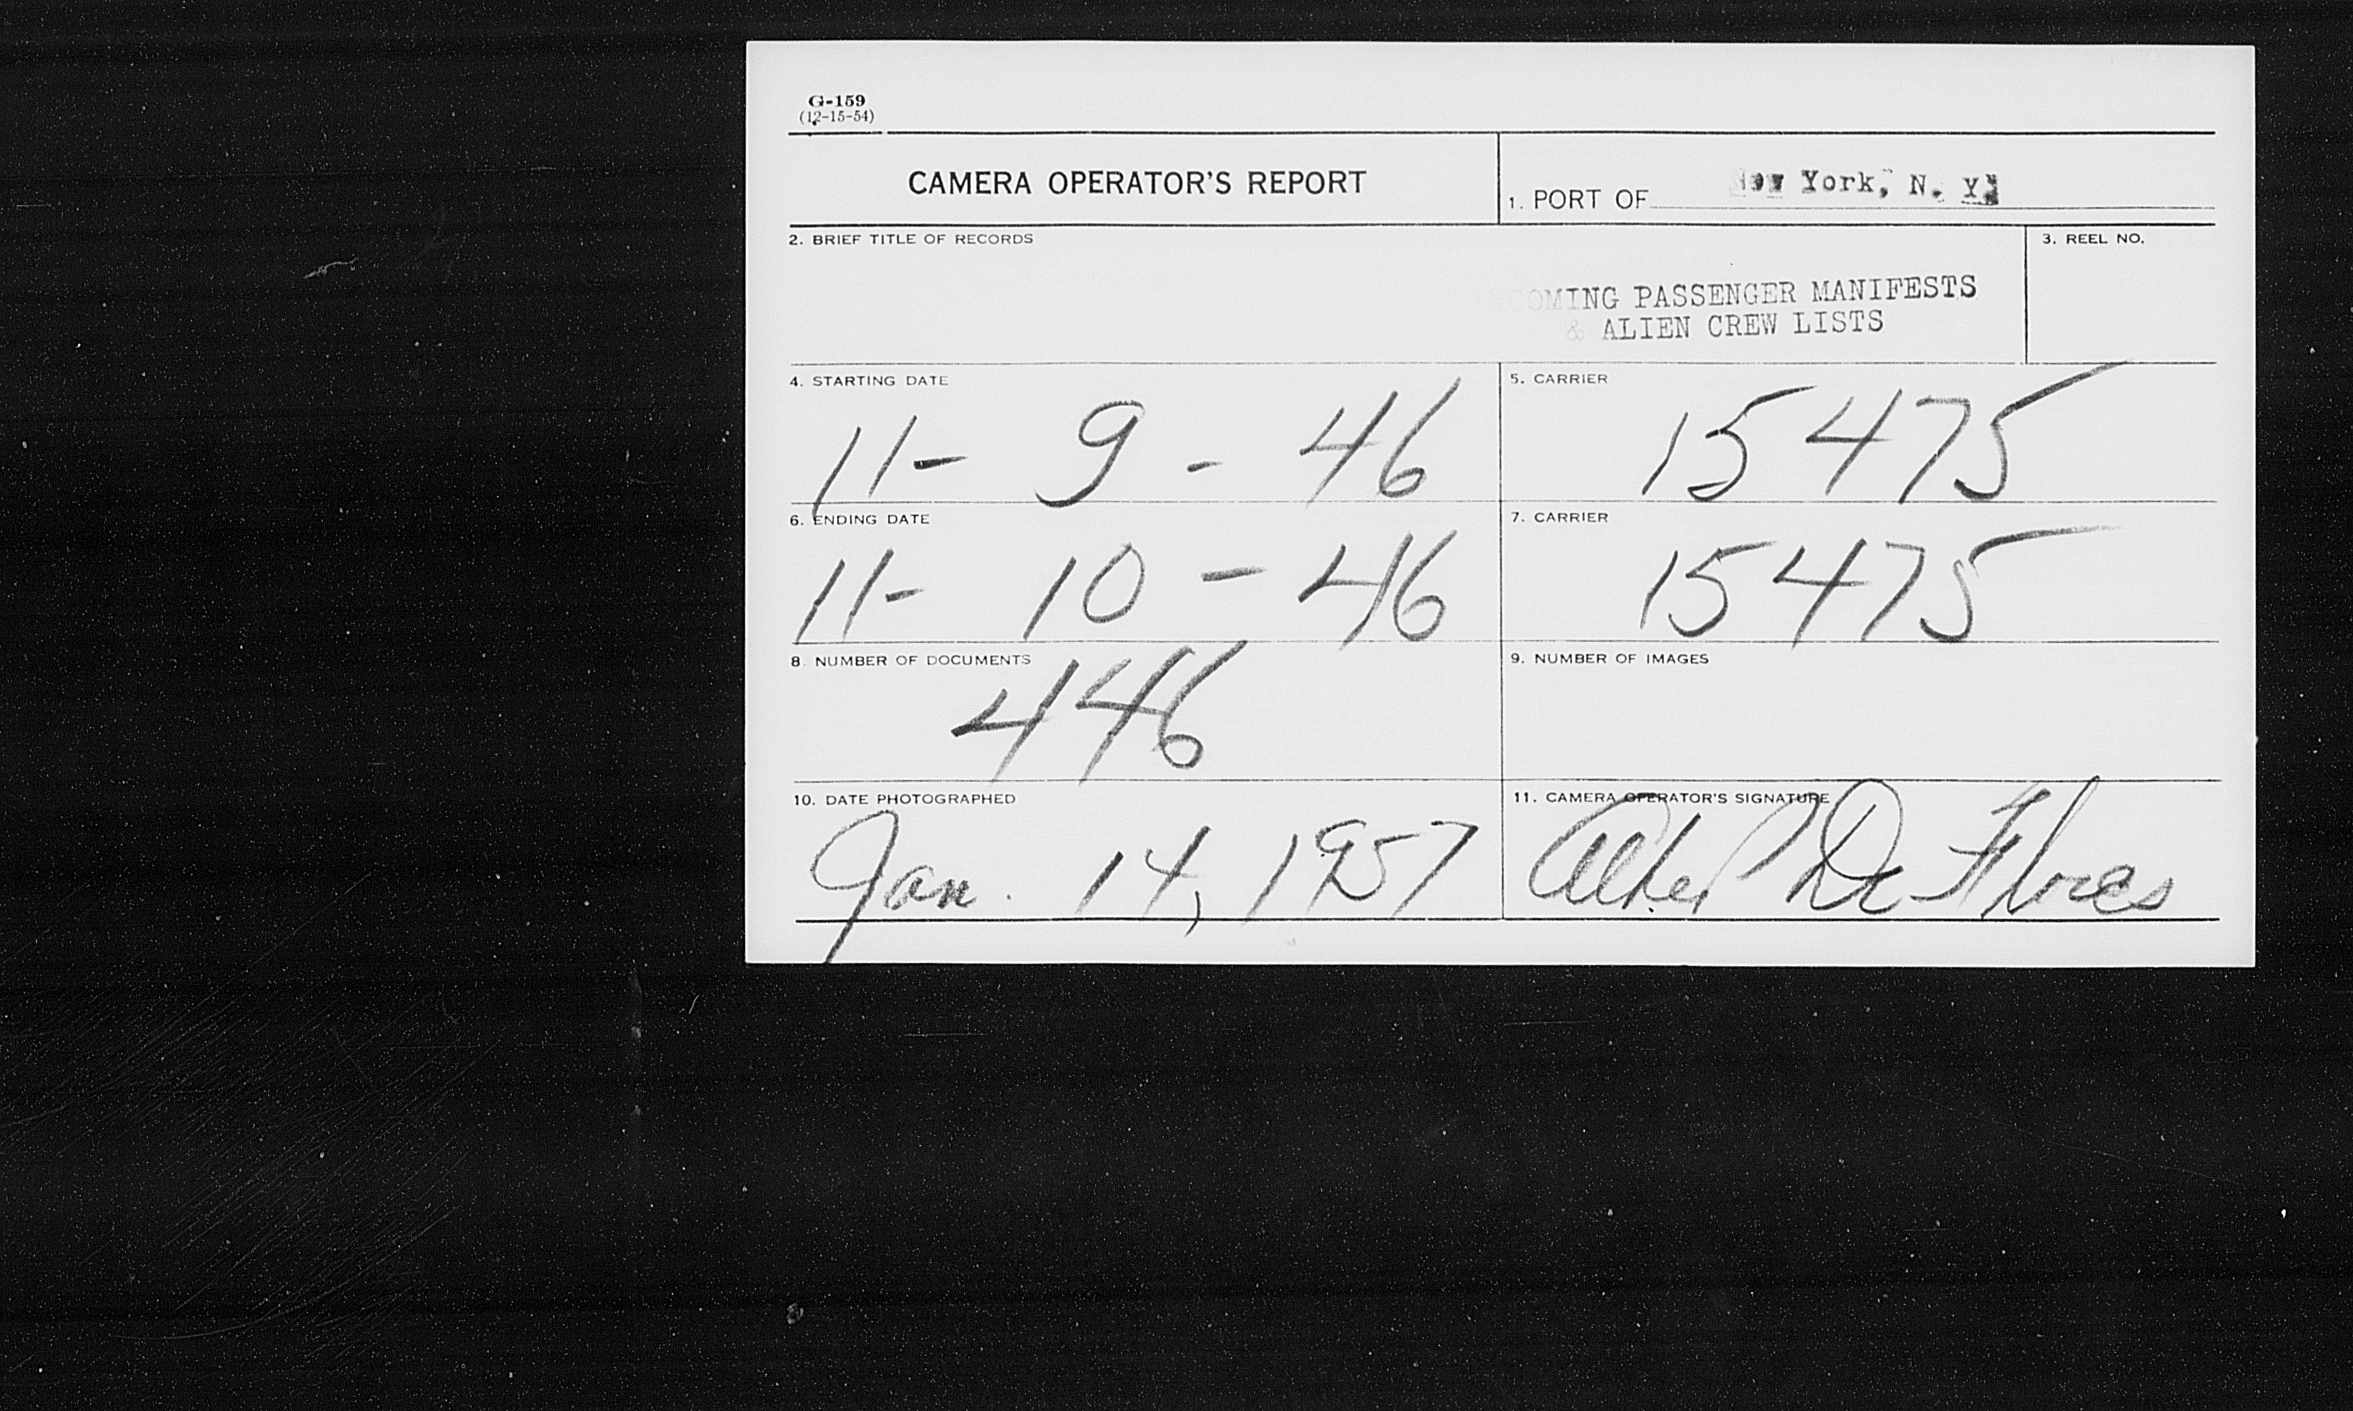 G-159
(12-15-54)
CAMERA OPERATOR'S REPORT
1. PORT OF New York, N. Y.
2. BRIEF TITLE OF RECORDS
COMING PASSENGER MANIFESTS
& ALIEN CREW LISTS
3. REEL NO.
4. STARTING DATE
11- 9 - 46
5. CARRIER
15475
6. ENDING DATE
11- 10 - 46
7. CARRIER
15475
8. NUMBER OF DOCUMENTS
446
9. NUMBER OF IMAGES
10. DATE PHOTOGRAPHED
Jan. 14, 1957
11. CAMERA OPERATOR'S SIGNATURE
De Flores